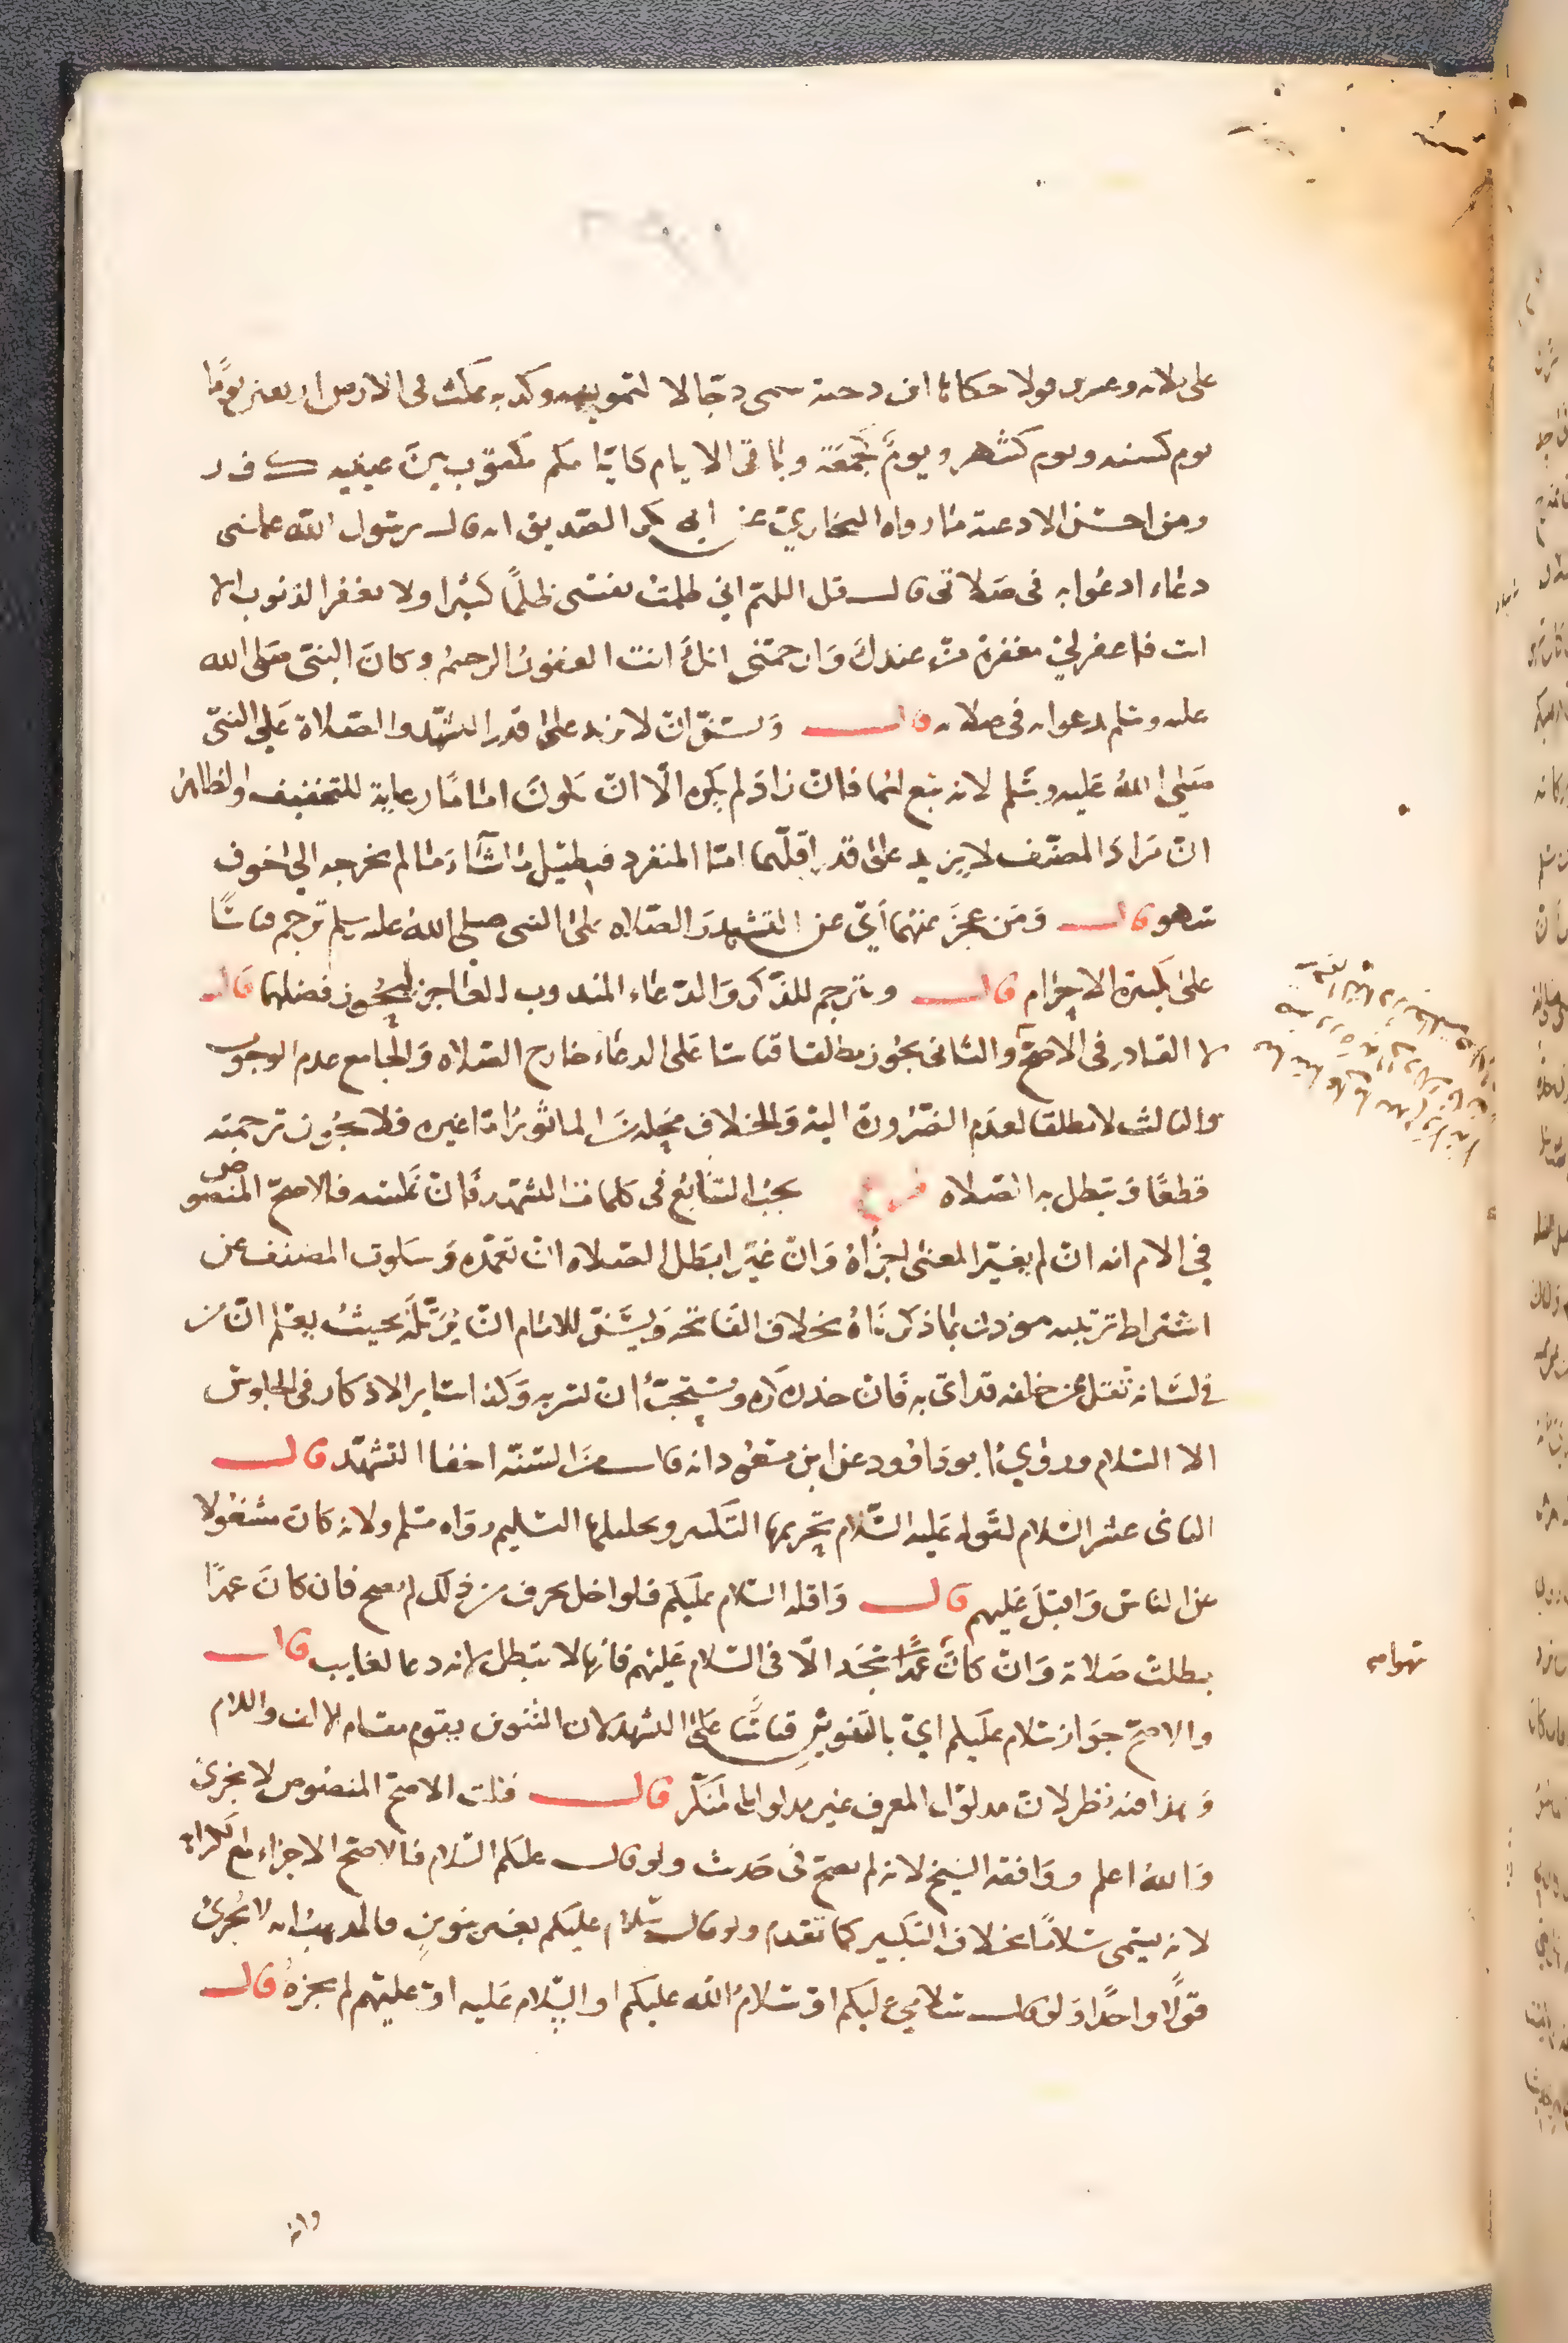 على ثلاثه وعشرين قولا حكاها ابن دحية سمى دجالا لتمويهه وكذبه يمكث فى الارض اربعين يومًا
يوم كسنه ويوم كشهر ويوم كجمعَة وباقى الايام كايامكم مكتوب بين عينيه ك ف ر
ومن احسن الادعية ما رواه البخاري عن ابى بكر الصديق انه قال يرسول الله علمنى
دعاء ادعوا به فى صلاتى قال قل اللهم اني ظلمت نفسى ظلمًا كثيرا ولا يغفر الذنوب الا
انت فاغفر لي مغفرة من عندك وارحمنى انك انت الغفور الرحيم وكان النبى صلى الله
عليه وسلم يدعوا به فى صلاته قال ويسن ان لا يزيد على قدر التشهد والصلاة على النبى
صلى الله عليه وسلم لانه تبع لهما فان زاد لم يكره الّا ان يكون امامًا رعاية للتخفيف والظاهر
ان مراد المصنف لا يزيد على قدر اقلهما امّا المنفرد فيطيل ما شاء ما لم يخرجه الى خوف
سهو قال ومن عجز عنهما أيْ عن التشهد والصلاه على النبى صلى الله عليه وسلم ترجم قياسًا
على تكبيرة الاحرام قال ويترجم للذكر والدعاء المندوب العاجز ليحوز فضلهما قال
لا القادر فى الاصح والثانى يجوز مطلقا قياسا على الدعاء خارج الصلاه والجامع عدم الوجوب
والثالث لا مطلقا لعدم الضرورة اليه والخلاف محله المأثور امّا غيره فلا يجوز ترجمته
قطعًا وتبطل به الصلاه فرع يجب التتابع فى كلمات التشهد فان نكسه فالاصح المنصوص
في الام انه ان لم يغيّر المعنى اجزأهُ وان غيّر ابطل الصلاه ان تعمده وسكوت المصنف عن
اشتراط ترتيبه موذن بما ذكرناهُ بخلاف الفاتحه ويسن للامام ان يرتله بحيث يعلم ان من
فى لسانه ثقل ممن خلفه قد اتى به فان حذره كره ويستحب ان يسر به وكذا سائر الاذكار فى الجلوس
الا السلام وروي ابو داوود عن ابن مسعود انه قال من السنه اخفا التشهد قال
الثانى عشر السلام لقوله عليه السّلام تحريمها التكبير وتحليلها التسليم رواه مسلم ولانه كان مشغولا
عن الناس واقبل عليهم قال واقله السلام عليكم فلو اخل بحرف من ذلك لم يصح فان كان عمدًا
بطلت صلاته وان كان عمدًا سجد الّا فى السلام عليهم فانها لا تبطل لانه دعا لغايب قال
والاصح جواز سلام عليكم اي بالتنوين قياسًا على التشهد لان التنوين يقوم مقام الالف واللام
وهذا فيه نظر لان مدلول المعرف غير مدلول المنكّر قال قلت الاصح المنصوص لا يجزئ
والله اعلم ووافقه الشيخ لانه لم يصح فى حديث ولو قال عليكم السلام فالاصح الاجزاء مع كراهه
لانه يسمى سلامًا بخلاف التكبير كما تقدم ولو قال سلام عليكم بغير تنوينٍ فالمذهب انه لا يجزئ
قولًا واحدًا ولو قال سلامي عليكم او سلامُ الله عليكم او السّلام عليه او عليهم لم يجزهُ قال
سهوا صح
وانه